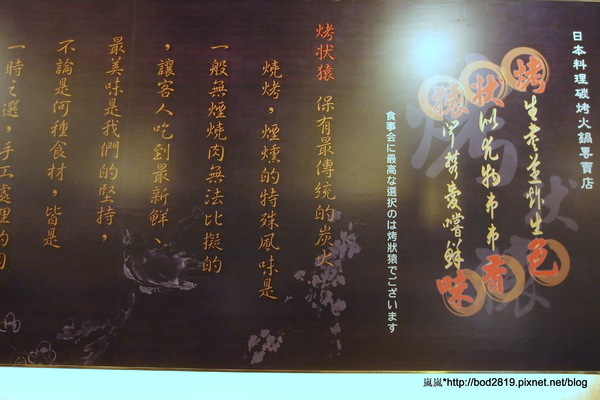 日本料理碳烤火鍋專賣店
烤生老薑川生色
狀以尤物市市香
猿字禁愛嚐鮮味
食事会に最高な選択のは烤狀猿でございます
烤状猿 保有最傳統的炭火
燒烤，煙燻的特殊風味是
一般無煙燒肉無法比擬的
，讓客人吃到最新鮮、
最美味是我們的堅持，
不論是何種食材，皆是
一時之選，手工處理的肉
嵐嵐*http://bod2819.pixnet.net/blog